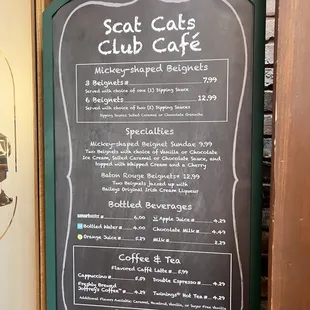 Scat Cats
Club Café
Mickey-shaped Beignets
3 Beignets 7.99
Served with choice of one (1) Dipping Sauce
6 Beignets 12.99
Served with choice of two (2) Dipping Sauces
Dipping Sauces: Salted Caramel or Chocolate Ganache
Specialties
Mickey-shaped Beignet Sundae 9.99
Two Beignets with choice of Vanilla or Chocolate
Ice Cream, Salted Caramel or Chocolate Sauce, and
topped with Whipped Cream and a Cherry
Baton Rouge Beignets 12.99
Two Beignets jazzed up with
Baileys Original Irish Cream Liqueur
Bottled Beverages
smartwater 6.00
Apple Juice 4.29
Bottled Water 4.00
Chocolate Milk 4.49
Orange Juice 5.29
Milk
Coffee & Tea
Flavored Caffè Latte 5.99
Cappuccino 5.69
Double Espresso 4.29
Freshly Brewed
Joffrey's Coffee 4.29
Twinings® Hot Tea 4.29
Additional Flavors Available: Caramel, Hazelnut, Vanilla, or Sugar-Free Vanilla